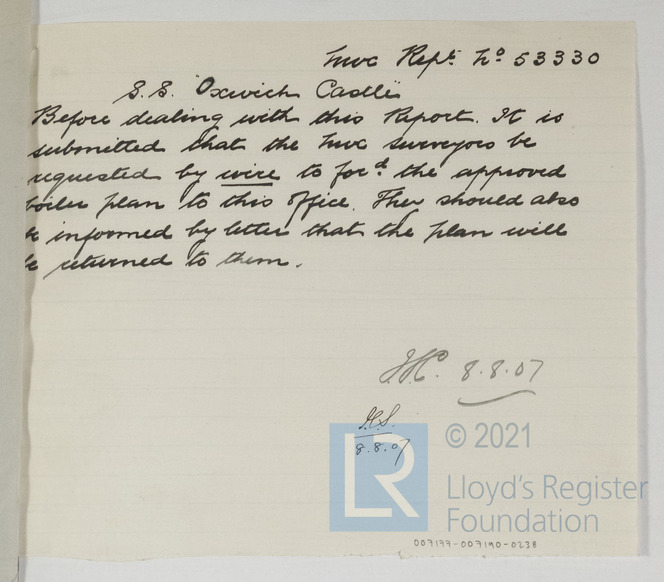 Nwc Rept. No 53330
S.S. "Oxwich Castle"
Before dealing with this Report. It is
submitted that the Nwc surveyors be
requested by wire to ford. the approved
boiler plan to this office. They should also
be informed by letter that the plan will
be returned to them.
8.8.07
8.8.07
LR
© 2021
Lloyd's Register
Foundation
007177-007190-0238